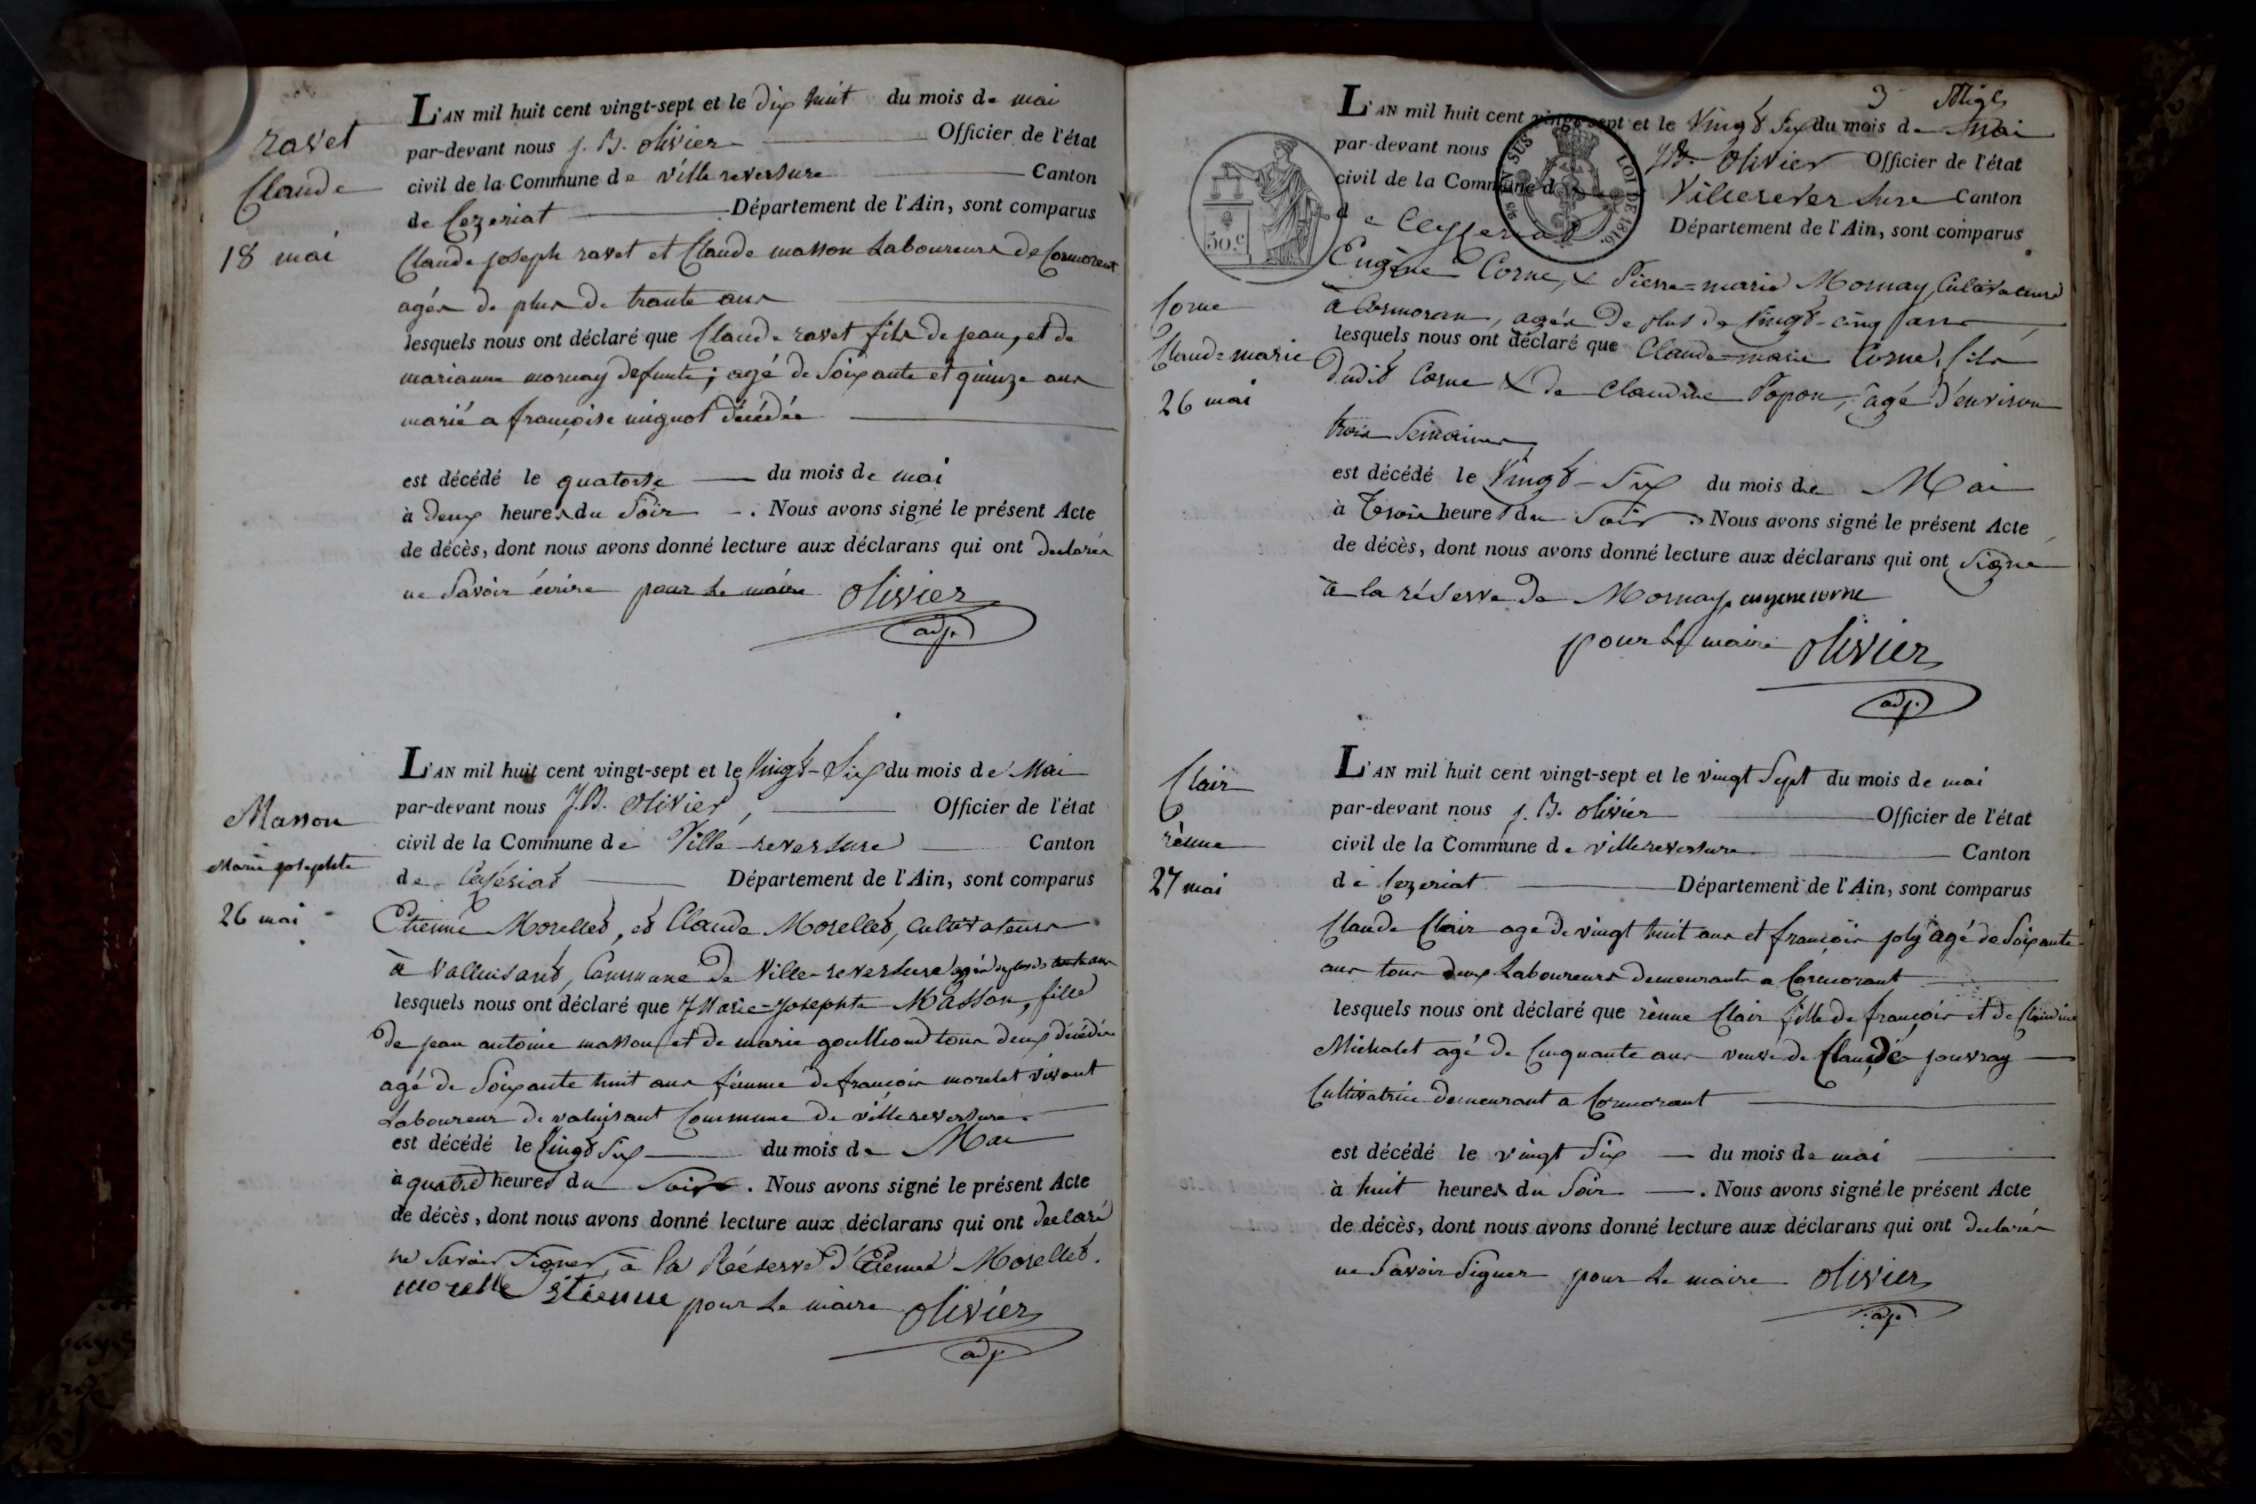 ravet
Claude
18 mai
L'AN mil huit cent vingt-sept et le dix huit du mois de mai
par-devant nous j. B. olivier Officier de l'état
civil de la Commune de villereversure Canton
de Cezeriat Département de l'Ain, sont comparus
Claude joseph ravet et Claude masson Laboureurs de Cormorant
agés de plus de trante ans
lesquels nous ont déclaré que Claude ravet fils de jean, et de
marianne mornay defunte; agé de Soixante et quinze ans
marié a françoise mignot décédée
est décédé le quatorse du mois de mai
à deux heures du Soir. Nous avons signé le présent Acte
de décès, dont nous avons donné lecture aux déclarans qui ont declarés
ne Savoir écrire pour Le maire olivier
adj.
Masson
Marie josephte
26 mai
L'AN mil huit cent vingt-sept et le Vingt-Six du mois de Mai
par-devant nous J.B. Olivier, Officier de l'état
civil de la Commune de Ville-reversure Canton
de Ceyseriat Département de l'Ain, sont comparus
Etienne Morellet, et Claude Morellet, Cultivateurs
à Valluisant, Commune de Ville-reversure agés de plus de trente ans
lesquels nous ont déclaré que Marie-Josephte Masson, fille
de jean antoine masson et de marie goullioud tous deux décédés
agé de Soixante huit ans femme de françois morelet vivant
Laboureur de valuisant Commune de villereversure
est décédé le Vingt Six du mois de Mai
à quatre heures du Soir. Nous avons signé le présent Acte
de décès, dont nous avons donné lecture aux déclarans qui ont declaré
ne Savoir Signer, à la Réserve d'Etienne Morellet.
morelle Etienne pour Le maire olivier
adj
3
L'AN mil huit cent vingt-sept et le Vingt Six du mois de Mai
par-devant nous J.B. Olivier Officier de l'état
civil de la Commune de Villereversure Canton
de Ceyseriat Département de l'Ain, sont comparus
50.c
EN SUS
LOI DE 1816.
Corne
Claude marie
26 mai
Eugène Corne, & Pierre-marie Mornay, Cultivateurs
à Cormoran, agés de plus de Vingt-cinq ans
lesquels nous ont déclaré que Claude-marie Corne, fils
dudit Corne & de Claudine Popon, âgé d'environ
trois Semaines
est décédé le Vingt-Six du mois de Mai
à Trois heures du Soir. Nous avons signé le présent Acte
de décès, dont nous avons donné lecture aux déclarans qui ont Signé
à la réserve de Mornay. eugene corne
pour Le maire olivier
adj.
Clair
rènne
27 mai
L'AN mil huit cent vingt-sept et le vingt Sept du mois de mai
par-devant nous j. B. olivier Officier de l'état
civil de la Commune de villereversure Canton
de Cezeriat Département de l'Ain, sont comparus
Claude Clair agé de vingt huit ans et françois joly agé de Soixante
ans tous deux Laboureurs demeurants a Cormorant
lesquels nous ont déclaré que rènne Clair fille de françois et de Claudine
Michalet agé de Cinquante ans veuve de Claude jouvray
Cultivatrice demeurant a Cormorant
est décédé le vingt Six du mois de mai
à huit heures du Soir. Nous avons signé le présent Acte
de décès, dont nous avons donné lecture aux déclarans qui ont declarés
ne Savoir Signer pour Le maire olivier
adj.